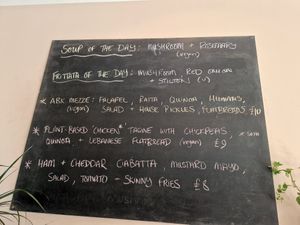 SOUP OF THE DAY: MUSHROOM + ROSEMARY
(vegan)
FRITTATA OF THE DAY: MUSHROOM, RED ONION
+ STILTON (V)
* ABK MEZZE: FALAFEL, RAITA, QUINOA, HUMMUS,
(vegan) SALAD + HOUSE PICKLES, FLATBREADS £10
* PLANT-BASED "CHICKEN" TAGINE WITH CHICKPEAS,
QUINOA + LEBANESE FLATBREAD (vegan) £9
* HAM + CHEDDAR CIABATTA, MUSTARD MAYO,
SALAD, TOMATO - SKINNY FRIES £8